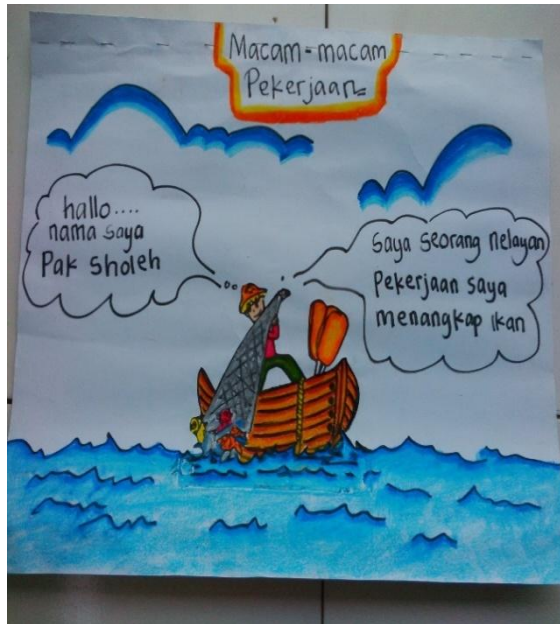 Macam-macam
Pekerjaan
hallo....
nama saya
Pak Sholeh
Saya seorang nelayan
Pekerjaan saya
menangkap ikan